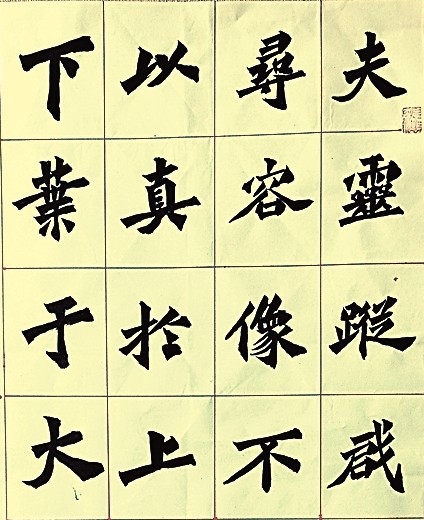 夫靈蹤啟
尋容像不
以真於上
下葉于大